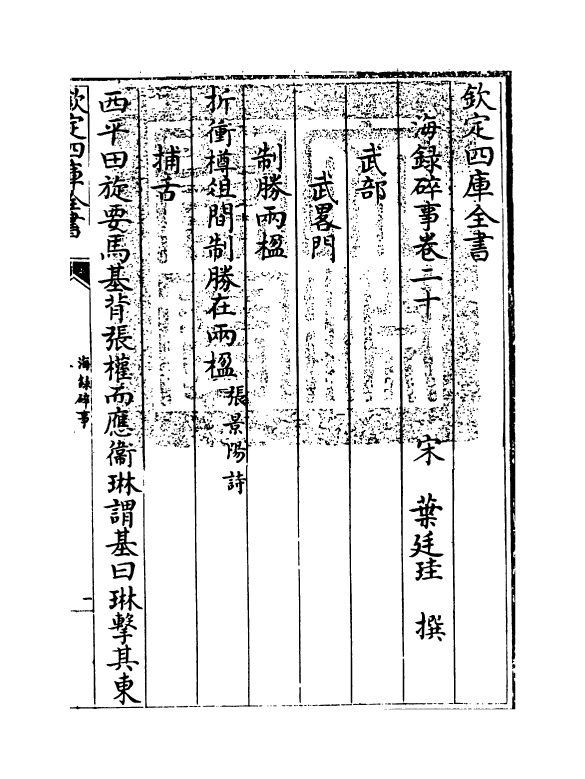 欽定四庫全書
海録碎事卷二十 宋 葉廷珪 撰
武部
武畧門
制勝兩楹
折衝樽俎間制勝在兩楹張景陽詩
捕舌
西平田旋要馬基背張權而應衞琳謂基曰琳擊其東
欽定四庫全書
海録碎事
一